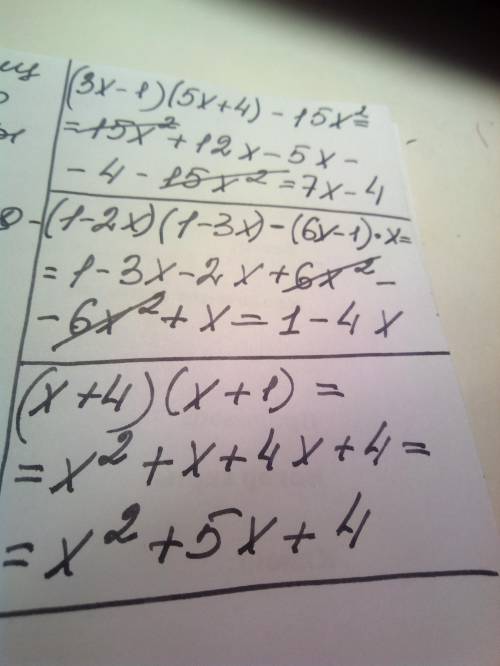 (3x-1)(5x+4)-15x²=
=15x²+12x-5x-
-4-15x²=7x-4
(1-2x)(1-3x)-(6x-1)·x=
=1-3x-2x+6x²-
-6x²+x=1-4x
(x+4)(x+1)=
=x²+x+4x+4=
=x²+5x+4